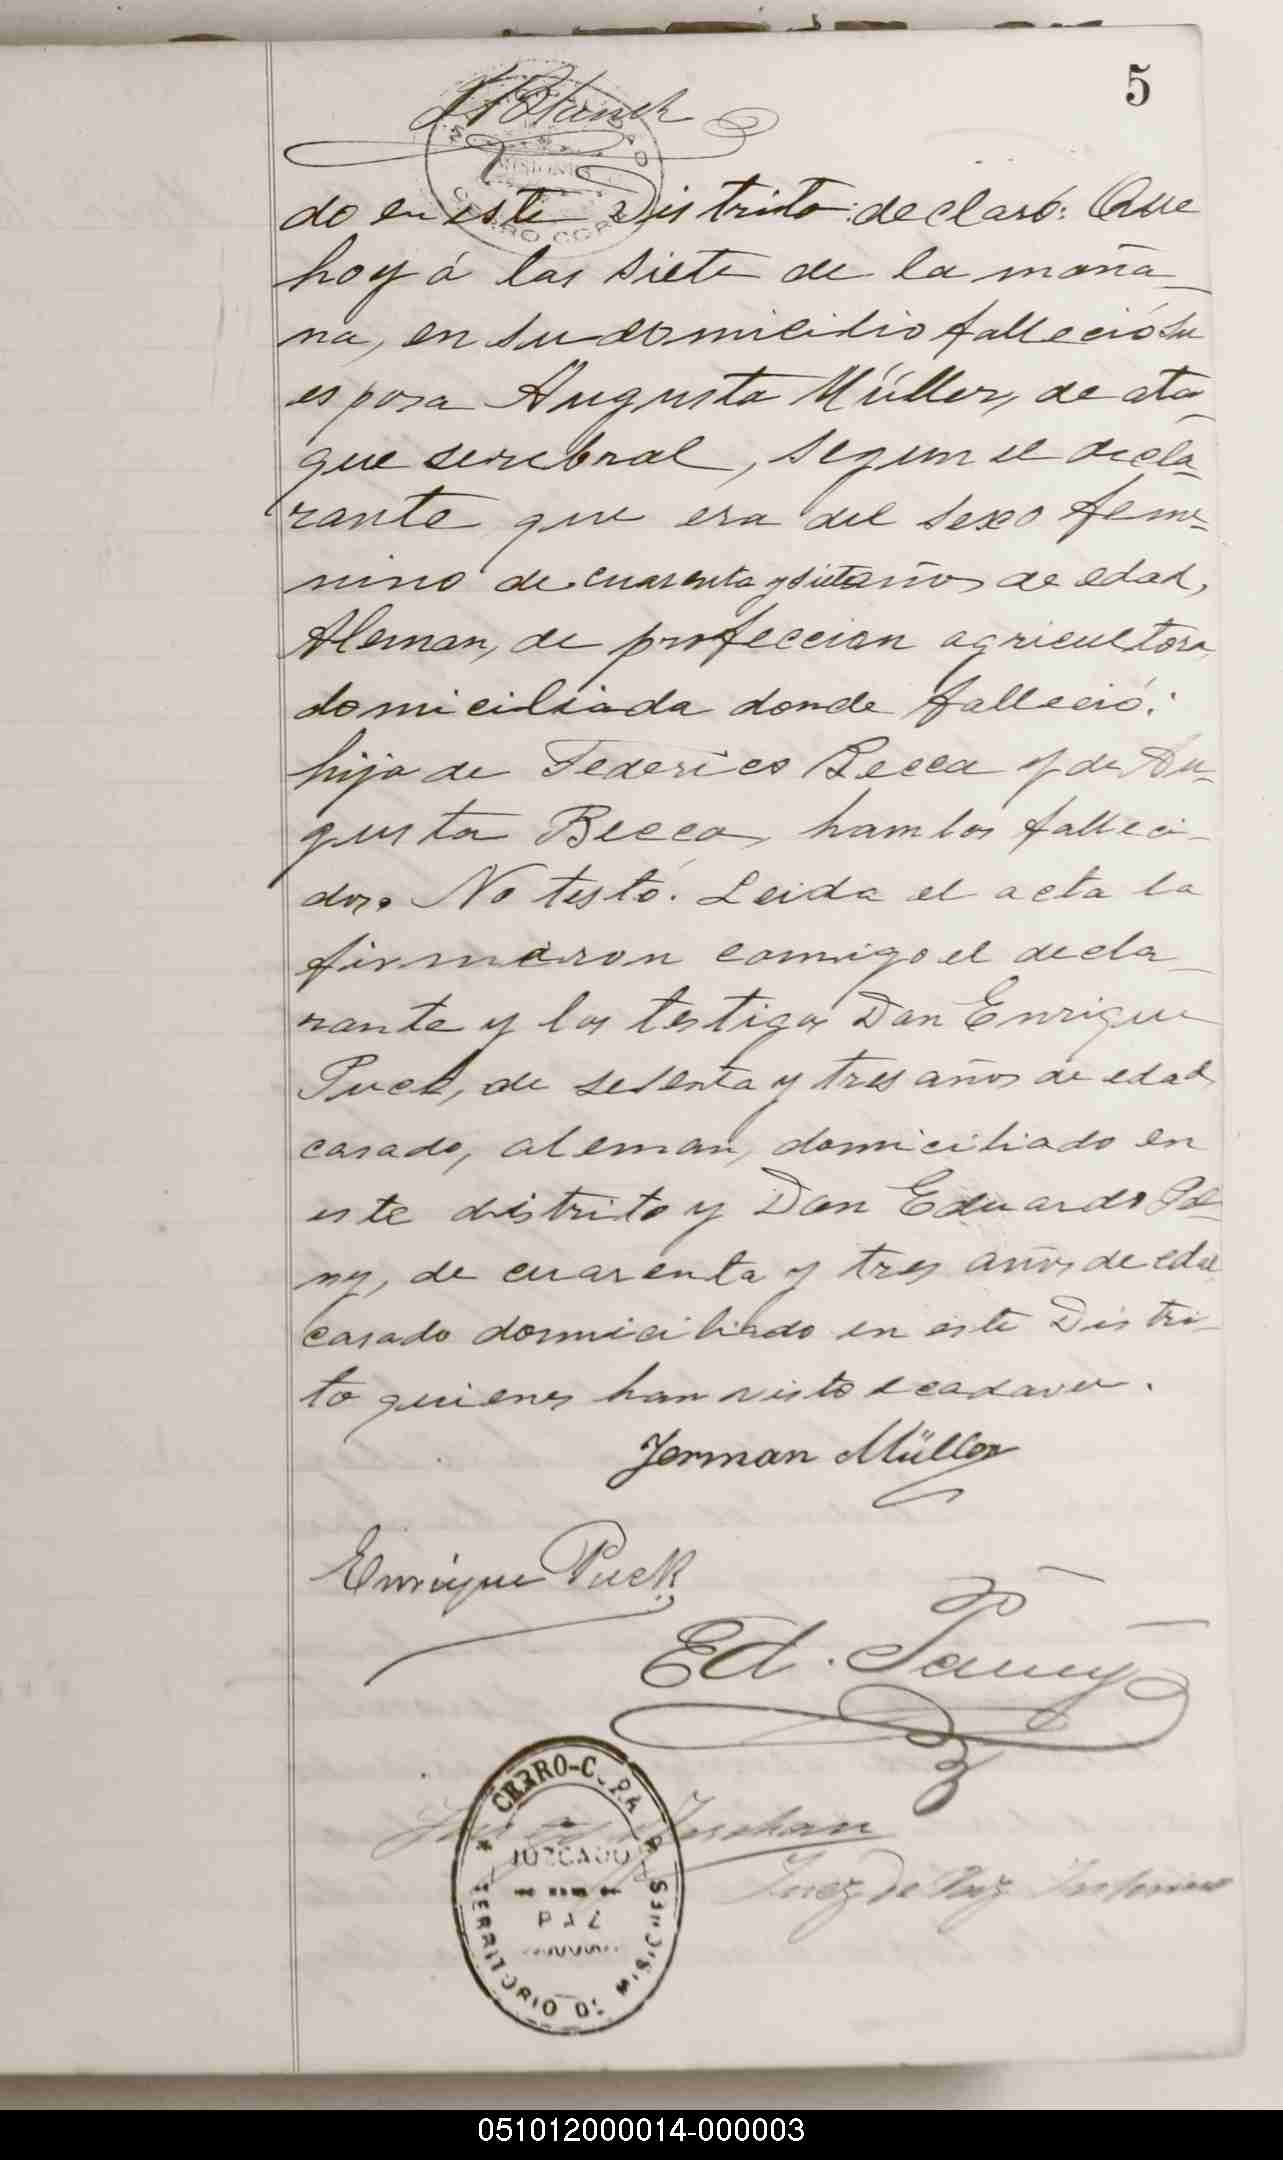 5
do en este Distrito: declaró: Que
hoy á las siete de la maña_
na, en su domicilio falleció su
esposa Augusta Müller, de ata-
que serebral, segun el decla-
rante que era del sexo feme-
nino de cuarenta y siete años de edad,
Aleman, de profeccion agricultora,
domiciliada donde falleció:
hija de Federico Becca y de Au-
gusta Becca, hambos falleci-
dos. No testó. Leida el acta la
firmaron comigo el decla-
rante y los testigos Don Enrique
Puck, de sesenta y tres años de edad
casado, aleman, domiciliado en
este distrito y Don Eduardo
ny, de cuarenta y tres años de edad
casado domiciliado en este Distri-
to quienes han visto el cadaver.
Jerman Müller
Enrique Puck
Ed.
CERRO-CORÁ
JUZGADO
DE
PAZ
TERRITORIO DE MISIONES
Juez de Paz
051012000014-000003